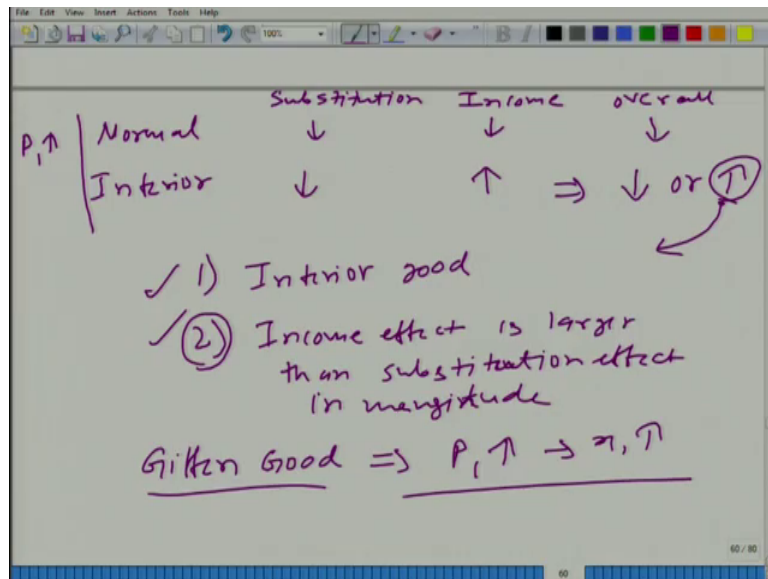 File Edit View Insert Actions Tools Help
100%
B I
Substitution Income overall
P₁↑ Normal ↓ ↓ ↓
Inferior ↓ ↑ ⇒ ↓ or ↑
✓ 1) Inferior good
✓ 2) Income effect is larger
than substitution effect
in mangitude
Giffen Good ⇒ P₁↑ → x₁↑
60 / 80
60